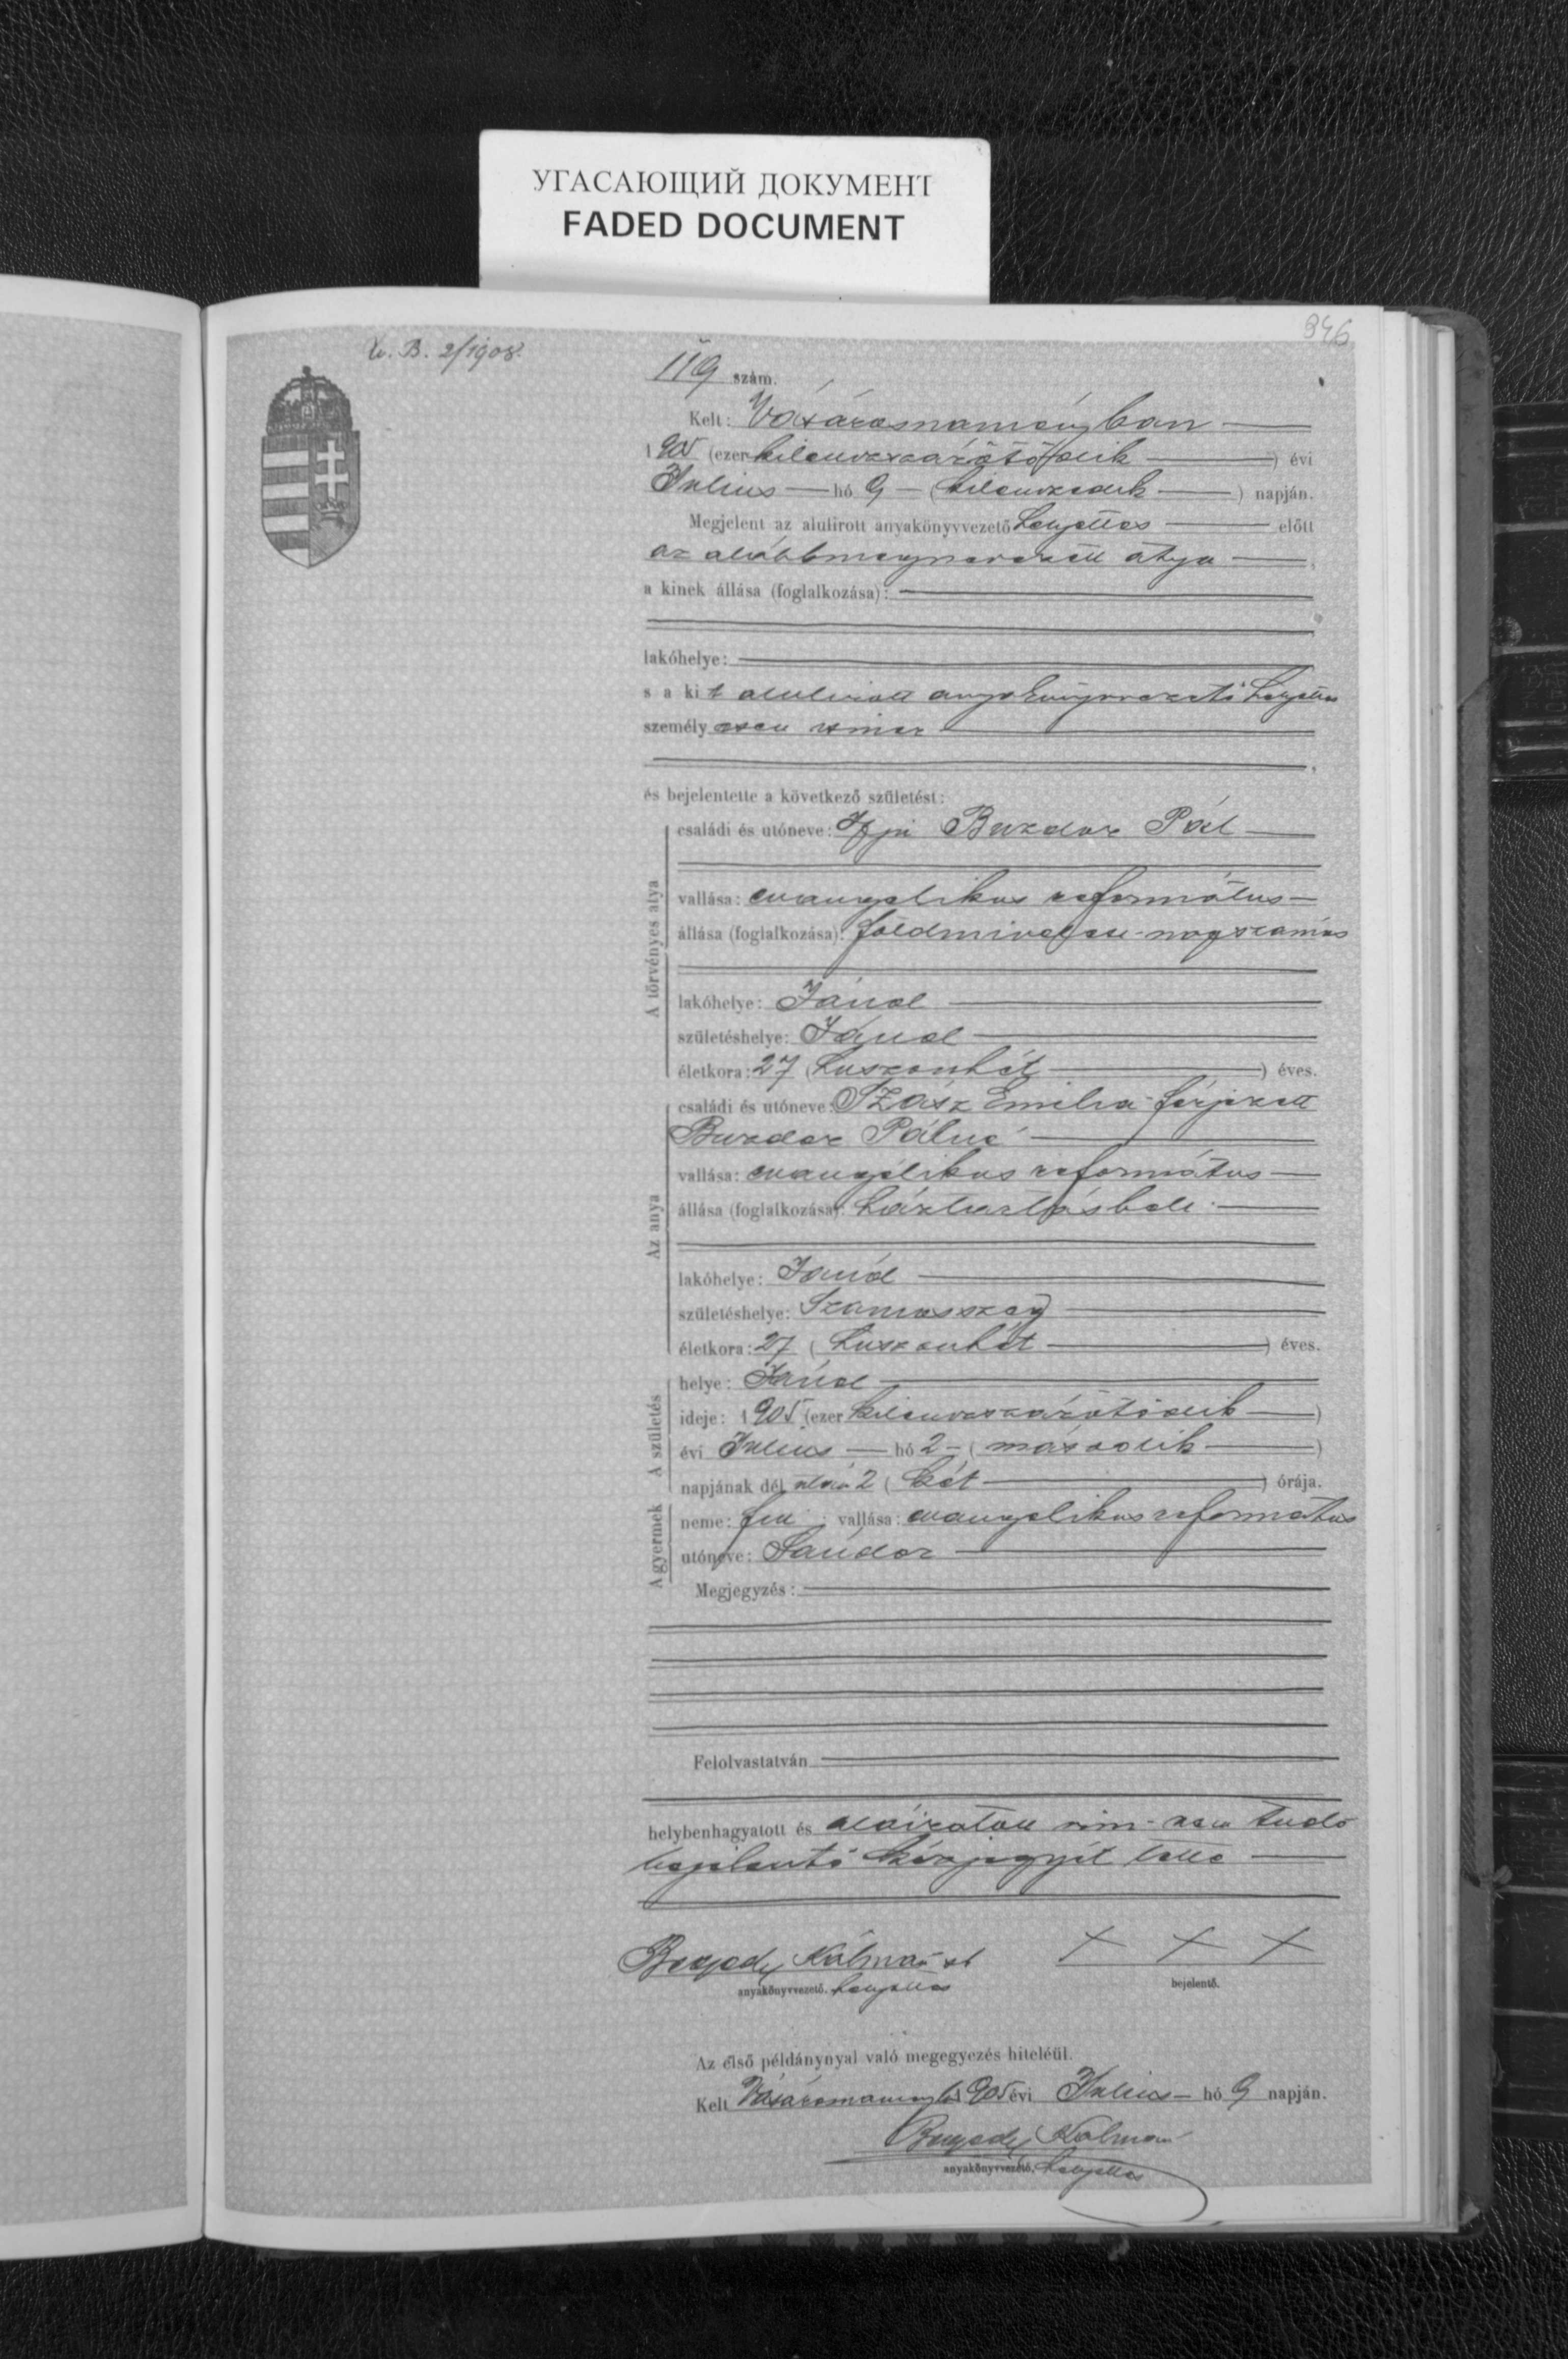 УГАСАЮЩИЙ ДОКУМЕНТ
FADED DOCUMENT
946
B. 2/1908.
119 szám.
Kelt: Vásárosnaményban
1905 (ezer kilenczszázötödik) évi
Julius hó 9 (kilenczedik) napján.
Megjelent az alulirott anyakönyvvezető helyettes előtt
az alább megnevezett atya,
a kinek állása (foglalkozása):
lakóhelye:
s a kit alulirott anyakönyvvezető helyettes
személyesen ismer
és bejelentette a következő születést:
A törvényes atya
családi és utóneve: Ifju Buzdor Pál
vallása: evangelikus református
állása (foglalkozása): földmivelesi napszámos
lakóhelye: Jánd
születéshelye: Jánd
életkora: 27 (huszonhét) éves.
Az anya
családi és utóneve: Szász Emilia férjezett
Buzdor Pálné
vallása: evangélikus református
állása (foglalkozása): háztartásbeli
lakóhelye: Jánd
születéshelye: Szamosszeg
életkora: 27 (huszonhét) éves.
A születés
helye: Jánd
ideje: 1905 (ezer kilenczszázötödik)
évi Julius hó 2 (második)
napjának dél előtt 2 (két) órája.
A gyermek
neme: fiu; vallása: evangelikus református
utóneve: Sándor
Megjegyzés:
Felolvastatván
helybenhagyatott és aláiratott irni nem tudó
bejelentő kézjegyét tette
Kálmán
× × ×
anyakönyvvezető. helyettes
bejelentő.
Az első példánynyal való megegyezés hiteléül.
Kelt Vásárosnamény 1905 évi Julius hó 9 napján.
Kálmán
anyakönyvvezető. helyettes